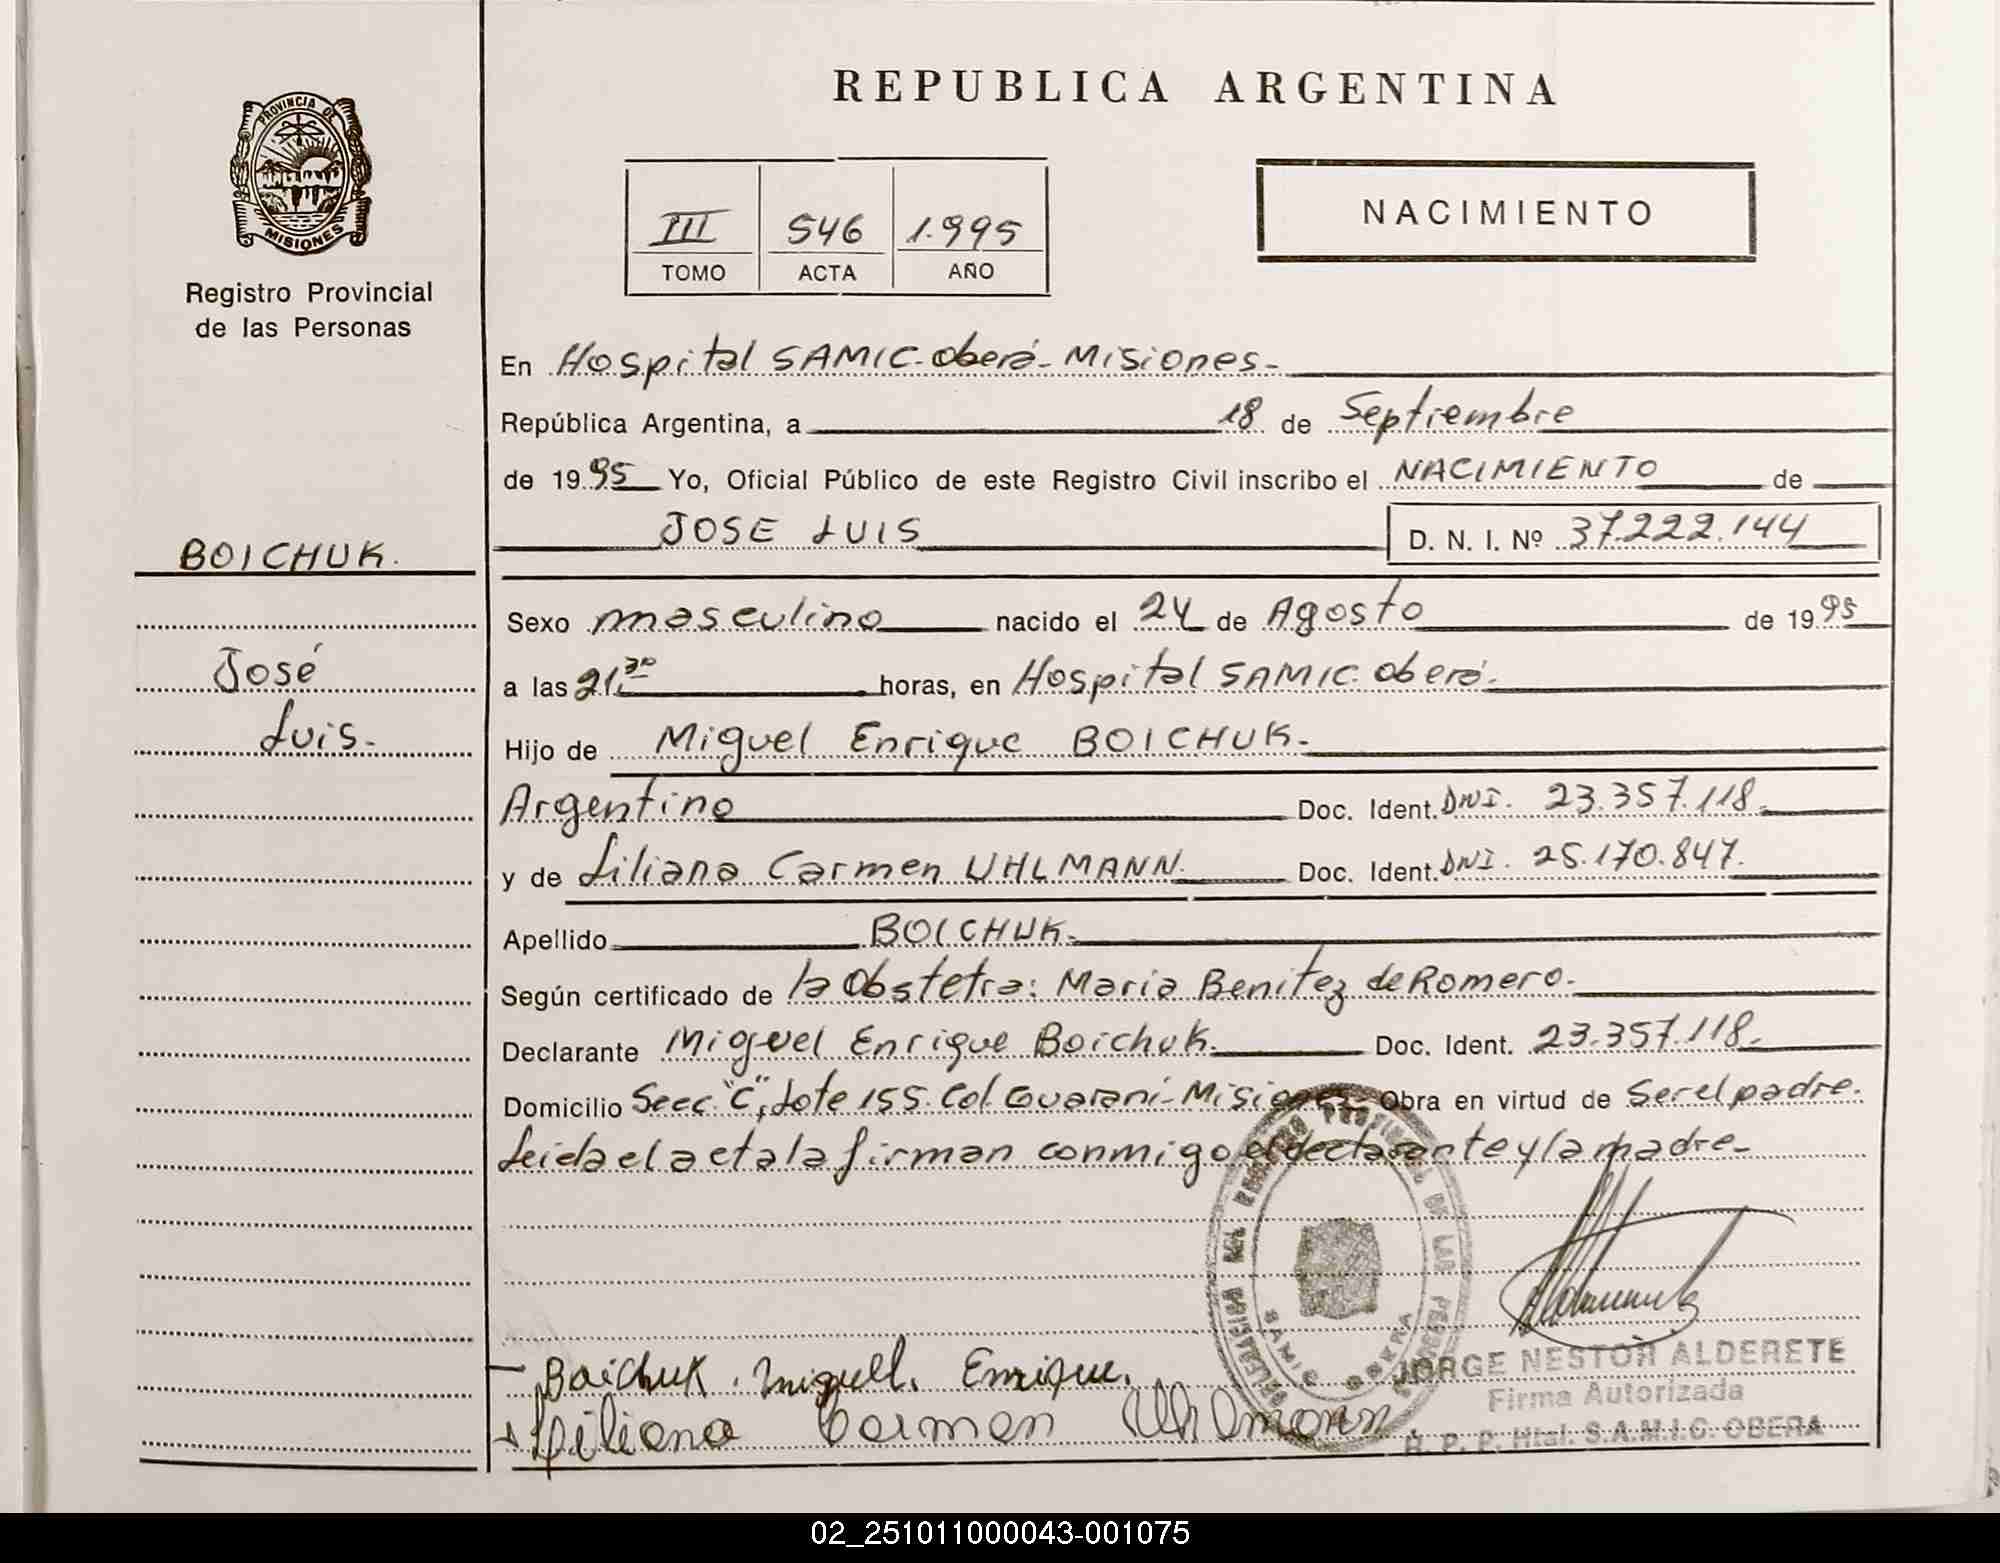 REPUBLICA ARGENTINA
PROVINCIA DE
MISIONES
Registro Provincial
de las Personas
III 546 1.995
TOMO ACTA AÑO
NACIMIENTO
En Hospital SAMIC-oberá-Misiones-
República Argentina, a 18 de Septiembre
de 1995 Yo, Oficial Público de este Registro Civil inscribo el NACIMIENTO de
JOSE LUIS D. N. I. Nº 37.222.144
BOICHUK.
José
Luis.-
Sexo masculino nacido el 24 de Agosto de 1995
a las 21:30 horas, en Hospital SAMIC. oberá.
Hijo de Miguel Enrique BOICHUK.
Argentino Doc. Ident. DNI. 23.357.118.
y de Liliana Carmen UHLMANN. Doc. Ident. DNI. 25.170.847.
Apellido BOICHUK.
Según certificado de la Obstetra: Maria Benitez de Romero.
Declarante Miguel Enrique Boichuk. Doc. Ident. 23.357.118.
Domicilio Secc. "C", Lote 155. Col. Guaraní-Misiones- Obra en virtud de ser el padre.
Leida el acta la firman conmigo el declarante y la madre-
SAMIC OBERA
Boichuk. Miguell. Enrique.
Liliana Carmen Uhlmann
JORGE NESTOR ALDERETE
Firma Autorizada
R. P. P. Htal. S.A.M.I.C. OBERA
02_251011000043-001075